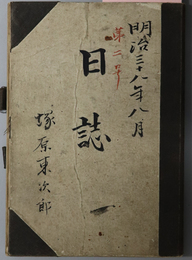 明治三十八年八月
第二号
日誌
塚原東次郎